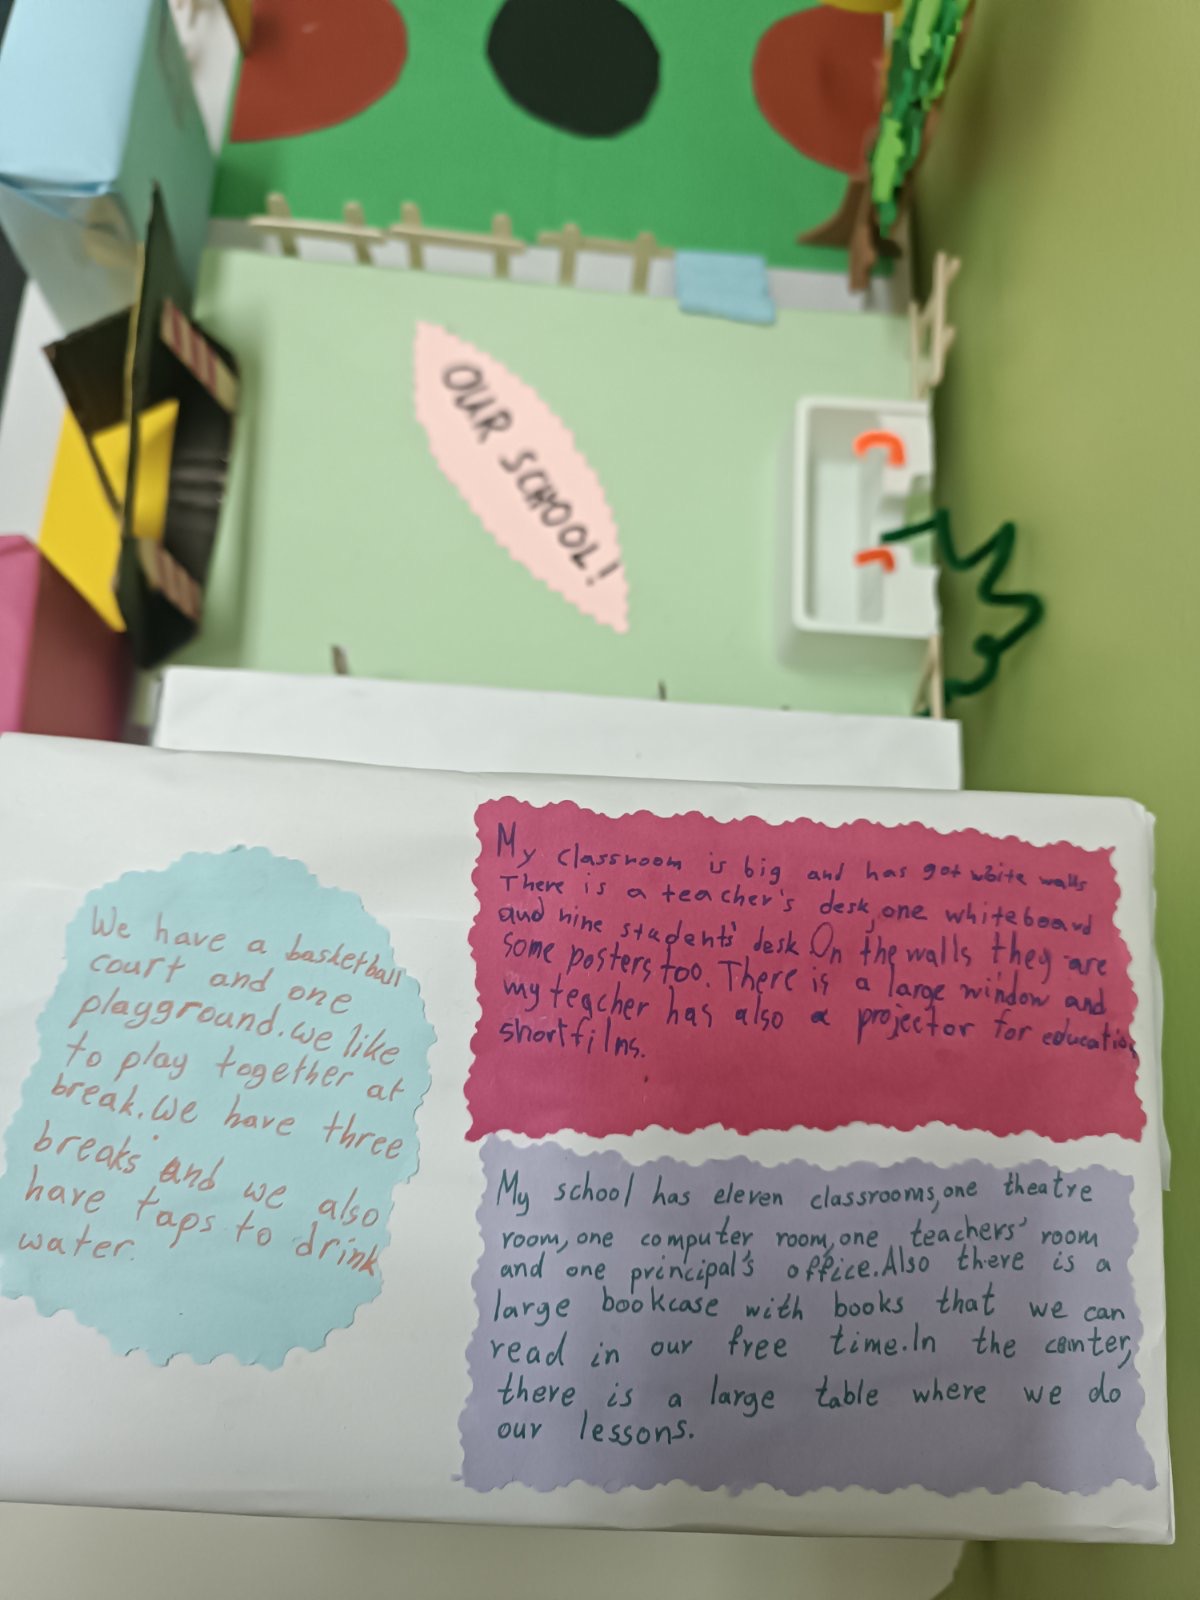 OUR SCHOOL!
We have a basketball
court and one
playground.we like
to play together at
break.We have three
breaks and we also
have taps to drink
water.
My classroom is big and has got white walls
There is a teacher's desk,one whiteboard
and nine students' desk On the walls they are
some posters too. There is a large window and
my teacher has also a projector for education
shortfilms.
My school has eleven classrooms,one theatre
room,one computer room,one teachers' room
and one principal's office.Also there is a
large bookcase with books that we can
read in our free time.In the center,
there is a large table where we do
our lessons.